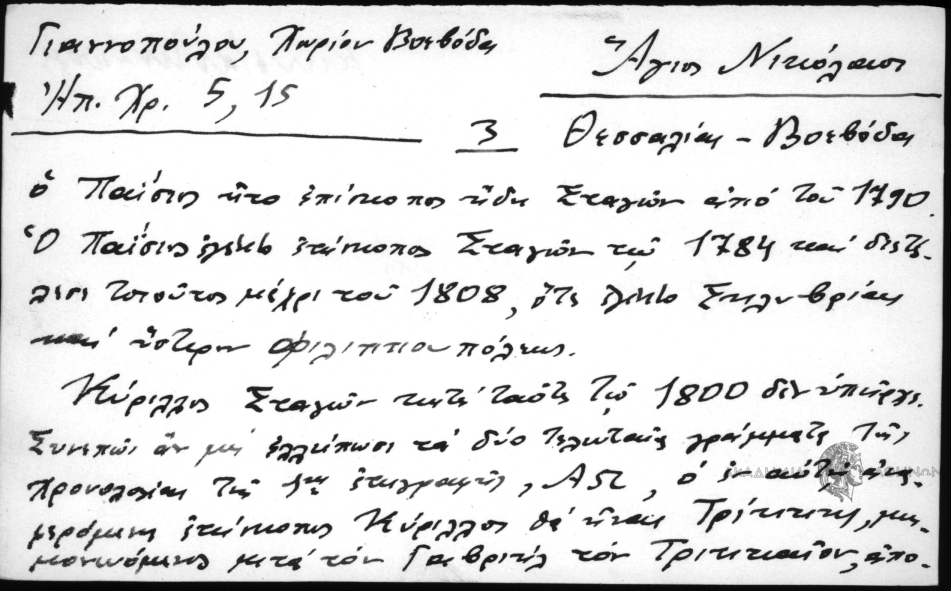 Γιαννοπούλου, Χωρίον Βοεβόδα
Ἅγιος Νικόλαος
Ἠπ. Χρ. 5, 15
3 Θεσσαλίας - Βοεβόδας
ὁ Παΐσιος ἦτο ἐπίσκοπος ἤδη Σταγῶν ἀπό τοῦ 1790.
Ὁ Παΐσιος ἐγένετο ἐπίσκοπος Σταγῶν τῷ 1784 καί διετέ-
λεσε τοιοῦτος μέχρι τοῦ 1808, ὅτε ἐγένετο Σηλυβρίας
καί ὕστερον Φιλιππουπόλεως.
Κύριλλος Σταγῶν κατά ταῦτα τῷ 1800 δέν ὑπῆρχε.
Συνεπῶς ἄν μή ἐλλείπωσι τά δύο τελευταῖα γράμματα τῆς
χρονολογίας τῆς 1ης ἐπιγραφῆς, ΑΩ, ὁ ἐν αὐτῇ ἀνα-
φερόμενος ἐπίσκοπος Κύριλλος θά εἶναι Τρίκκης, μνη-
μονευόμενος μετά τόν Γαβριήλ τόν Τρικκαῖον, ἀπο-